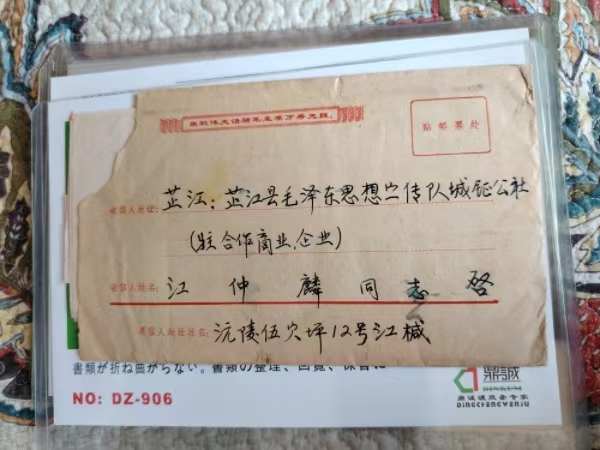 敬祝伟大领袖毛主席万寿无疆
贴邮票处
收信人地址: 芷江: 芷江县毛泽东思想宣传队城郊公社
(驻合作商业.企业)
收信人姓名: 江仲麟同志 启
寄信人地址姓名: 沅陵伍家坪12号江械
書類が折れ曲がらない。書類の整理、回覧、保管に
NO: DZ-906
鼎誠
DINGCHENGWENJU